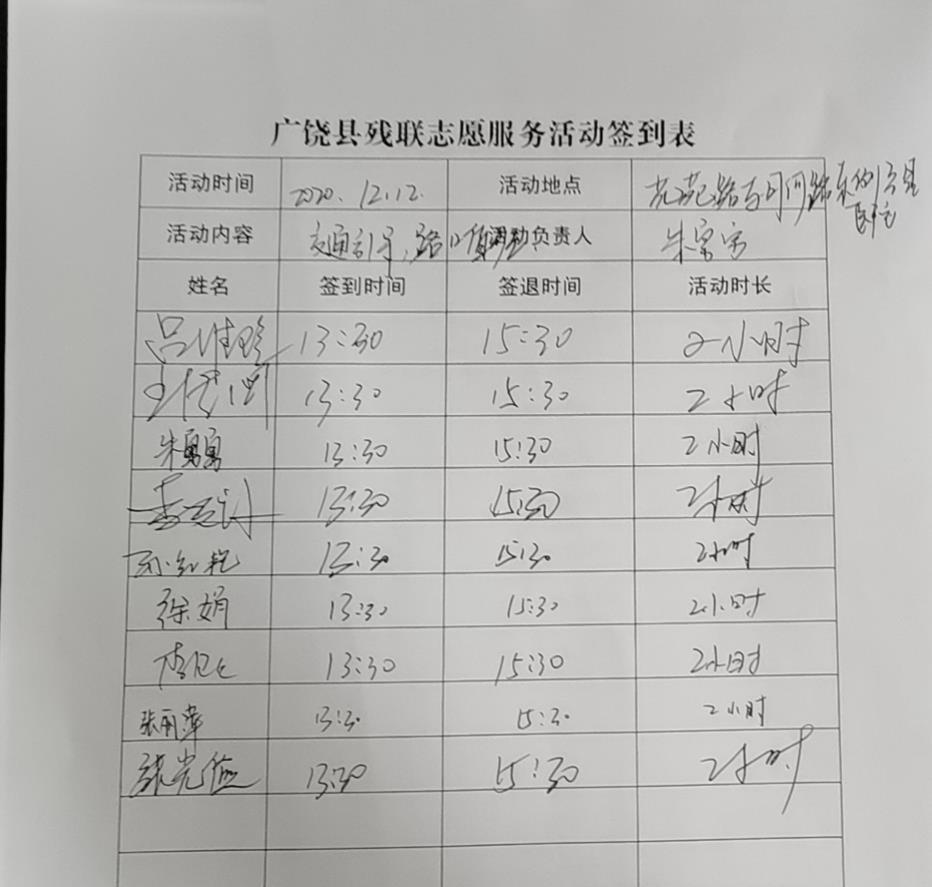 广饶县残联志愿服务活动签到表
活动时间 2020.12.12. 活动地点
活动内容 交通引导、路口 活动负责人 朱勇勇
姓名 签到时间 签退时间 活动时长
吕维珍 13:30 15:30 2小时
13:30 15:30 2小时
朱勇勇 13:30 15:30 2小时
13:30 15:30 2小时
孙红艳 13:30 15:30 2小时
徐娟 13:30 15:30 2小时
13:30 15:30 2小时
张丽萍 13:30 15:30 2小时
张光 13:30 15:30 2小时